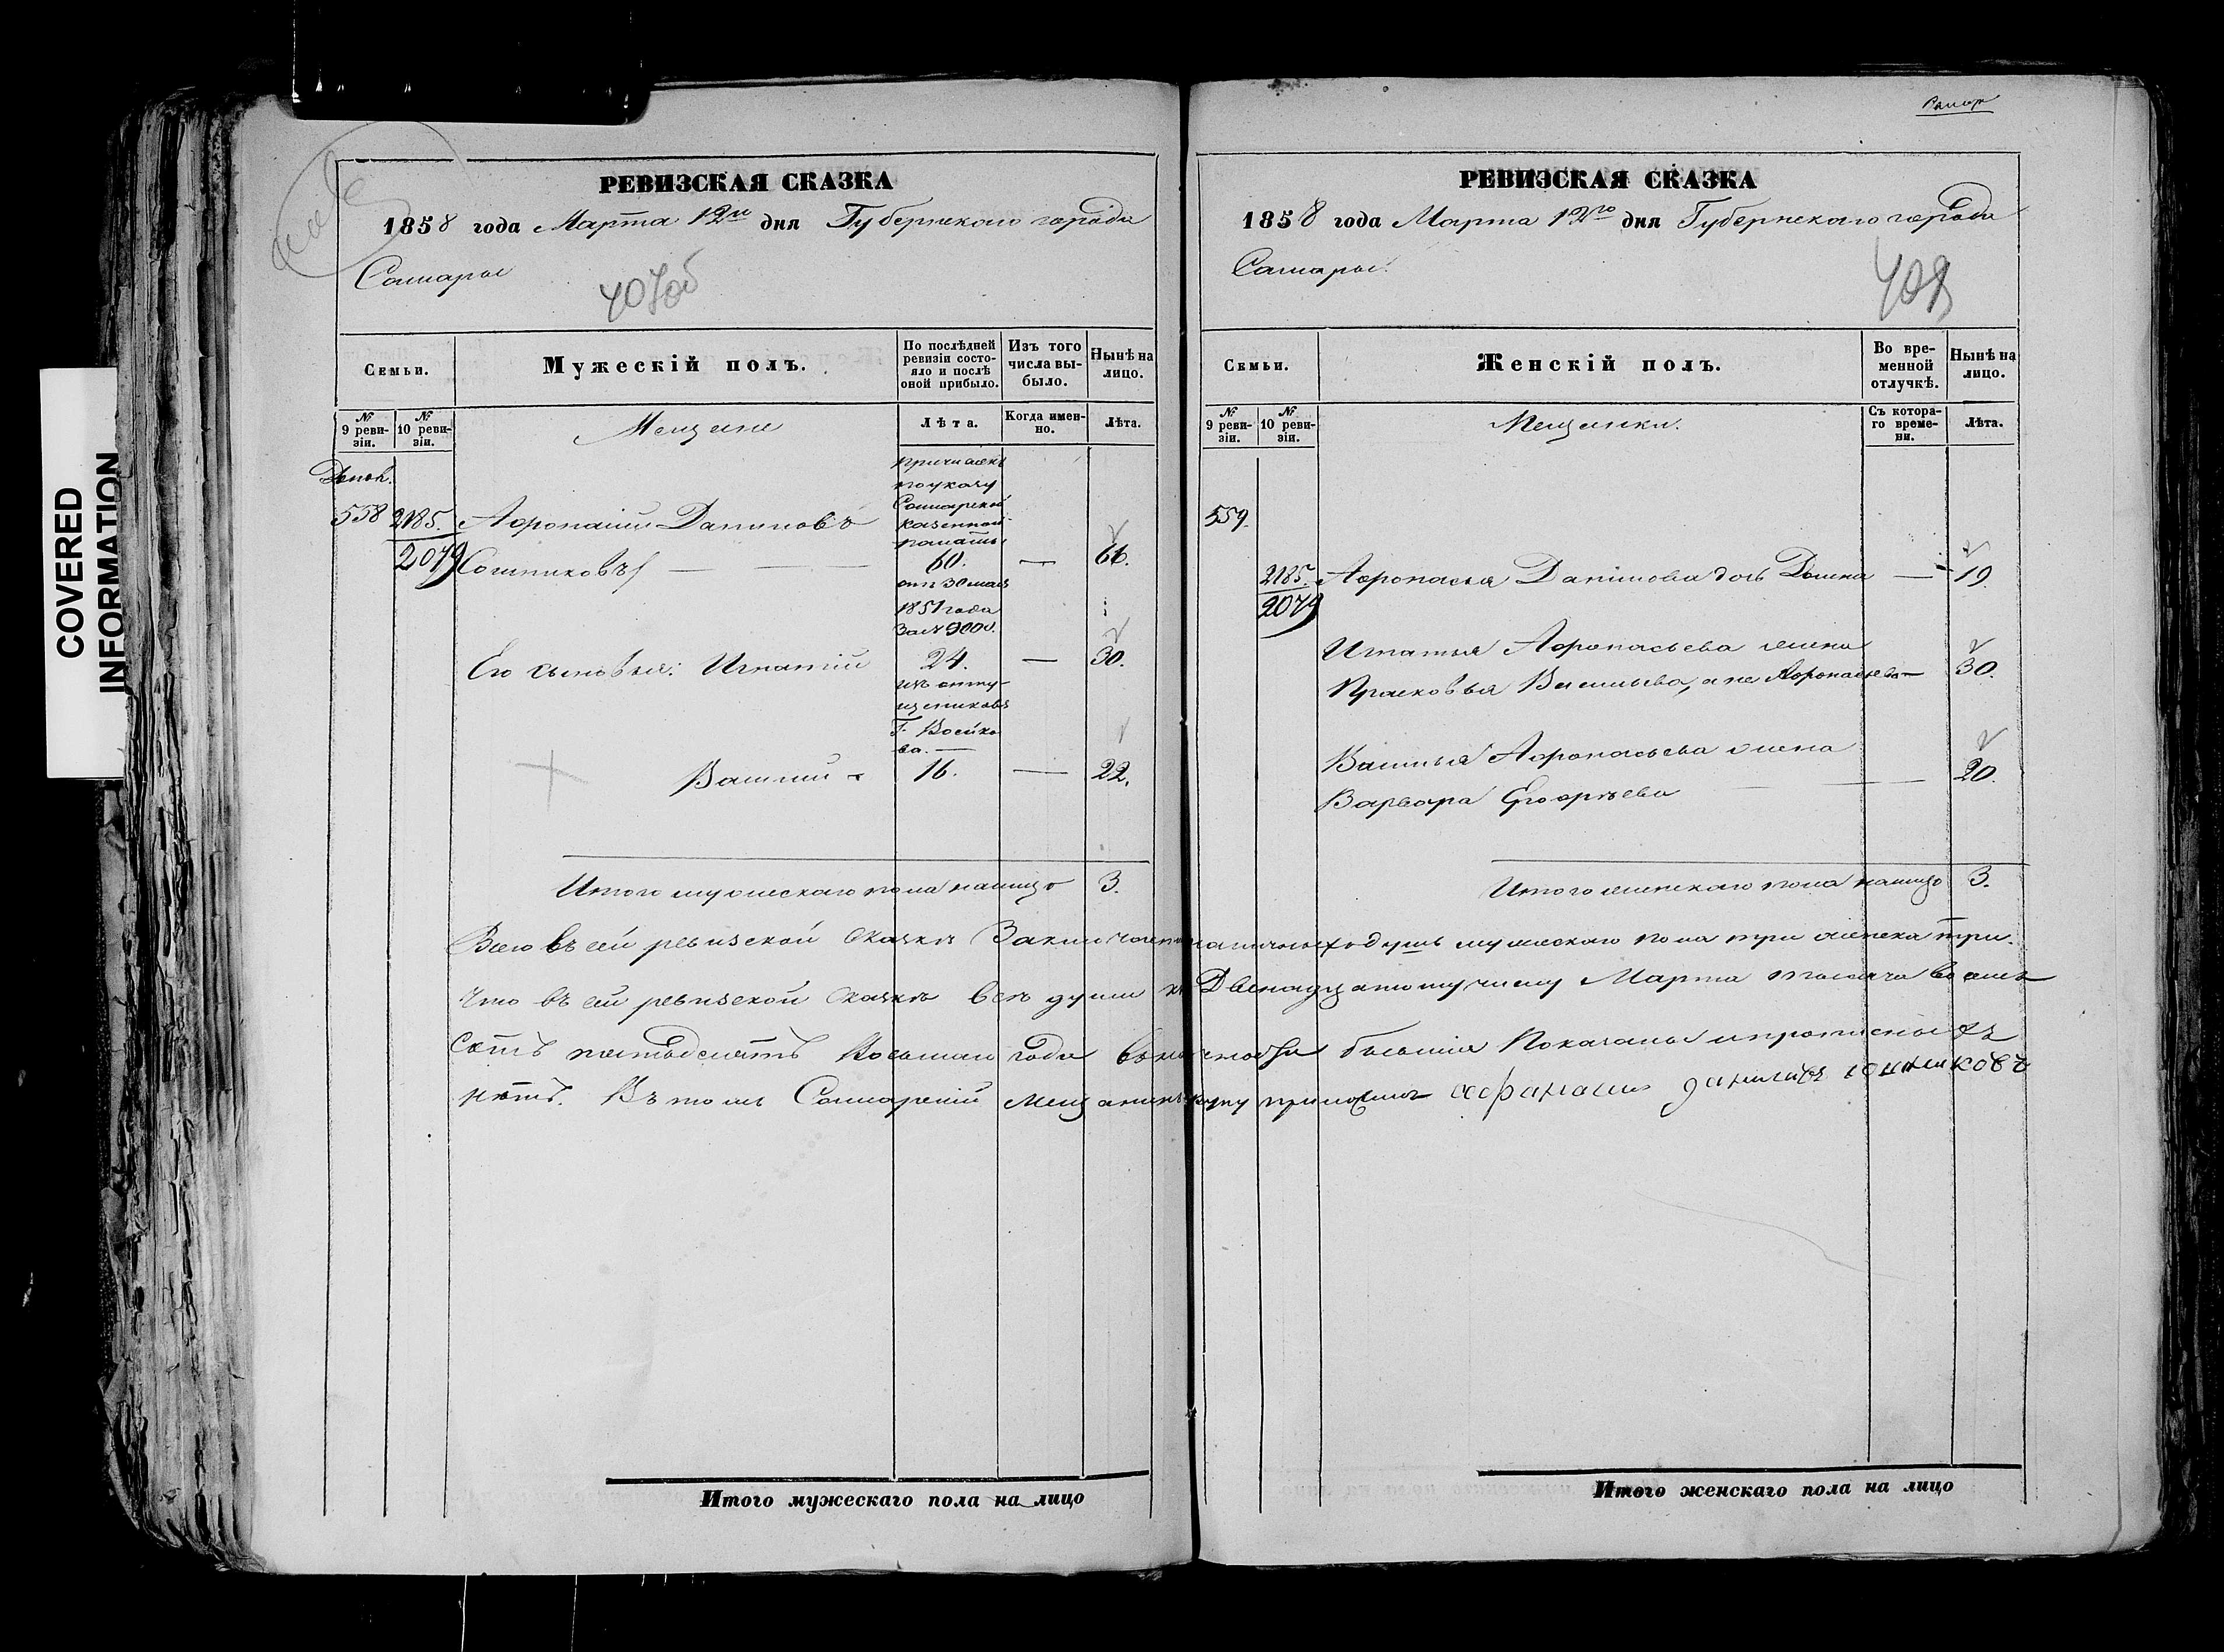 COVERED
INFORMATION
РЕВИЗСКАЯ СКАЗКА
1858 года Марта 12го дня Губернскаго города
Самары
407об
Семьи.
Мужескій полъ.
По послѣдней ревизіи состояло и послѣ оной прибыло.
Изъ того числа выбыло.
Нынѣ на лицо.
№ 9 ревизіи.
№ 10 ревизіи.
Мещане
Лѣта.
Когда именно.
Лѣта.
причислен
по указу
Самарской
казенной
палаты
558 2185. Афонасій Даниловъ
2079 60. — 66.
отъ 30 мая
1851 года
за № 9000.
Его сыновья: Игнатій 24. — 30.
изъ отпу-
щениковъ
Г. Воейко
ва. —
Василій 16. — 22.
Итого мужескаго пола налицо 3.
РЕВИЗСКАЯ СКАЗКА
1858 года Марта 12го дня Губернскаго города
Самары.
408
Семьи.
Женскій полъ.
Во временной отлучкѣ.
Нынѣ на лицо.
№ 9 ревизіи.
№ 10 ревизіи.
Мещанки.
Съ котораго времени.
Лѣта.
559.
2185. Афонасья Данилова дочь — 19.
2079
Игнатья Афонасьева жена
Прасковья Васильева, а не Афонасьева — 30.
Василья Афонасьева жена
Варвара Егорьева — 20.
Итого женскаго пола налицо 3.
Всего въ сей ревизской сказкѣ Заключается наличныхъ душъ мужескаго пола три женска три.
Что въ сей ревизской сказкѣ всѣ души къ Двенадцатому числу Марта тысяча восемь
сотъ пятьдесятъ Восьмаго года въ наличности бывшія Показаны и прописныхъ
нѣтъ. Въ томъ Самарскій мещанинъ руку приложилъ афанасий данилавъ
Итого мужескаго пола на лицо
Итого женскаго пола на лицо